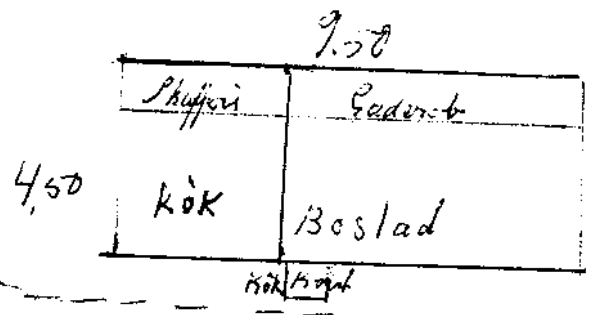 9.50
Skafferi Garderob
4,50
Kök Boslad
Kök